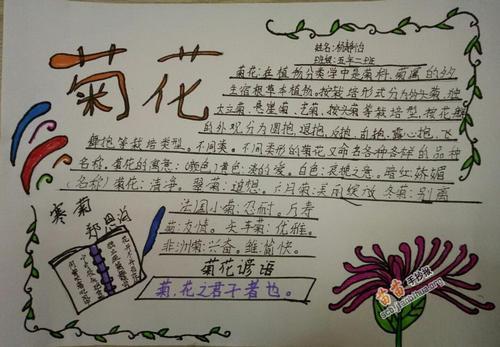 菊花
姓名:杨静怡
班级:五年二班
菊花:在植物分类学中是菊科、菊属的多
年生宿根草本植物。按栽培形式分为多头菊、独
大立菊、悬崖菊、艺菊、按头菊等栽培型,按花瓣
的外观分为园抱、退抱、反抱、乱抱、露心抱、飞
舞抱等栽培类型。不同类。不同类形的菊花又命名各种各样的品种
名称。菊花的寓意:(颜色)黄色:淡的爱。白色:哀挽之意。暗红:妩媚
(名称)菊花:清净。翠菊:追想。六月菊:
冬菊:别离
法国小菊:忍耐。万寿
菊:友情。矢车菊:优雅。
非洲菊:兴奋。雏:愉快。
菊花谚语
菊,花之君子者也。
寒菊
郑思肖
苗苗手抄报